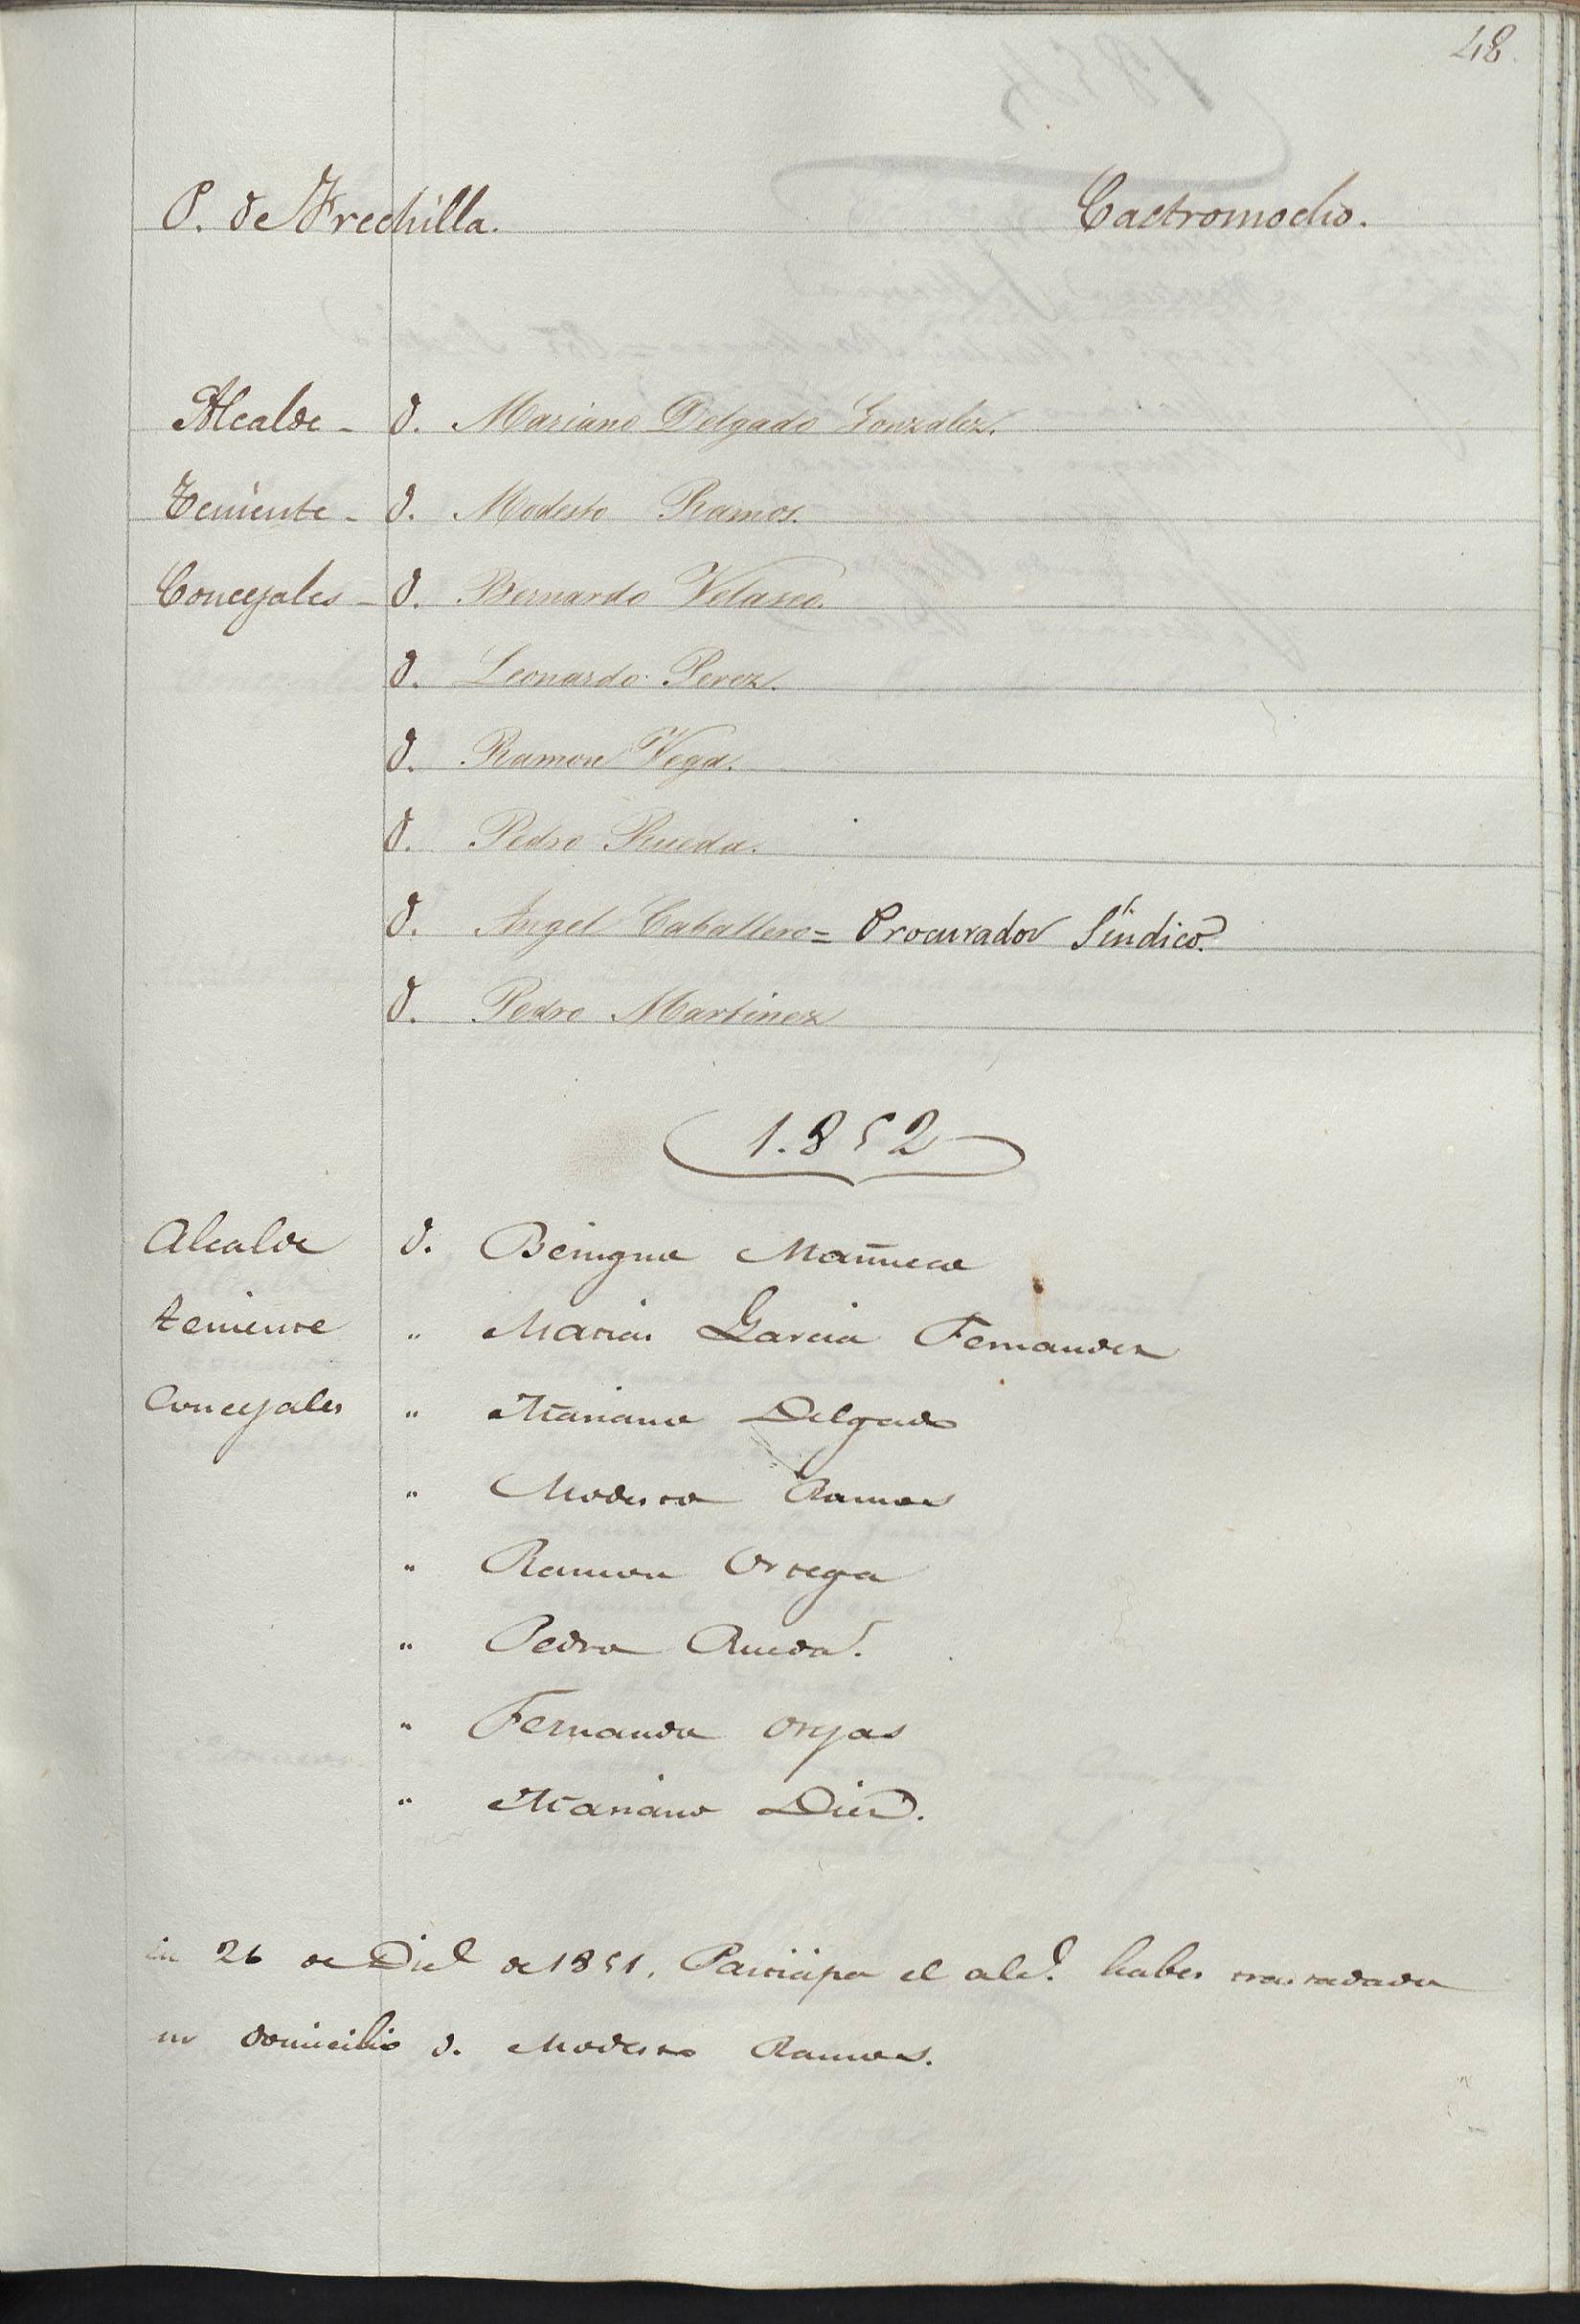 48.
P. de Frechilla. Castromocho.
Alcalde - D. Mariano Delgado Gonzalez.
Teniente - D. Modesto Ramos.
Concejales - D. Bernardo Velasco.
D. Leonardo Perez.
D. Ramon Vega.
D. Pedro Rueda.
D. Angel Caballero = Procurador Síndico.
D. Pedro Martinez
1.852
Alcalde D. Benigno Mañueco
Teniente " Matias Garcia Fernandez
Concejales " Mariano Delgado
" Modesto Ramos
" Ramon Ortega
" Pedro Rueda.
" Fernando Orejas
" Mariano Diez.
En 26 de Dice de 1851. Participa el alde. haber trasladado
su domicilio D. Modesto Ramos.